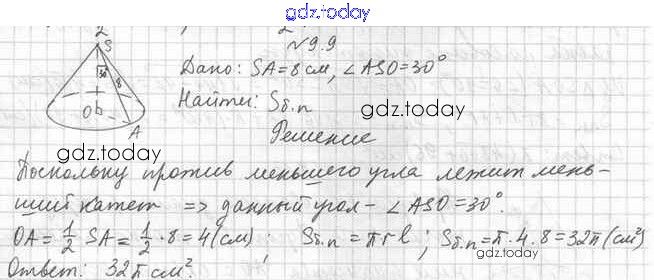 gdz.today
2
S
30
8
O
A
№9.9
Дано: SA=8см, ∠ASO=30°
Найти: Sб.п
gdz.today
Решение
gdz.today
Поскольку против меньшего угла лежит мень-
ший катет => данный угол - ∠ASO=30°.
OA = 1/2 SA = 1/2 · 8 = 4 (см); Sб.п = πrl; Sб.п = π·4·8 = 32π (см²)
Ответ: 32π см².
gdz.today